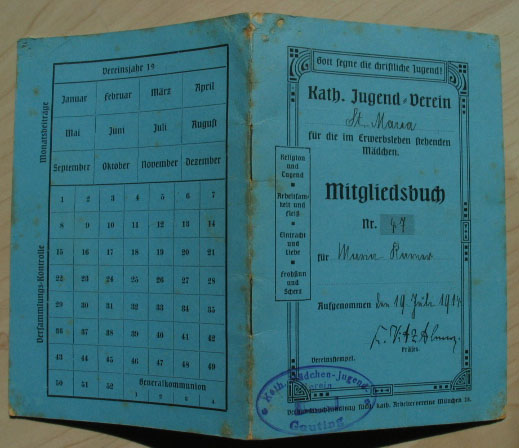 Vereinsjahr 19
Monatsbeiträge
Januar Februar März April
Mai Juni Juli August
September Oktober November Dezember
Versammlungs-Kontrolle
1 2 3 4 5 6 7
8 9 10 11 12 13 14
15 16 17 18 19 20 21
22 23 24 25 26 27 28
29 30 31 32 33 34 35
36 37 38 39 40 41 42
43 44 45 46 47 48 49
50 51 52 Generalkommunion
1 2 3 4
Gott segne die christliche Jugend!
Kath. Jugend-Verein
St. Maria
für die im Erwerbsleben stehenden
Mädchen.
Religion
und
Tugend
Arbeitsam-
keit und
Fleiß
Eintracht
und
Liebe
Frohsinn
und
Scherz
Mitgliedsbuch
Nr. 47
für
Aufgenommen den 19 Juli
Präses.
Vereinsstempel.
Kath. Mädchen-Jugend-
Verein
Gauting
südd. kath. Arbeitervereine München